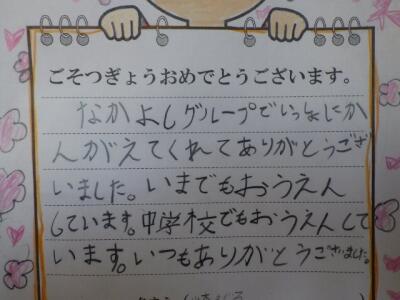 ごそつぎょうおめでとうございます。
なかよしグループでいっしょにか
んがえてくれてありがとうござ
いました。いまでもおうえん
しています。中学校でもおうえんして
います。いつもありがとうございました。